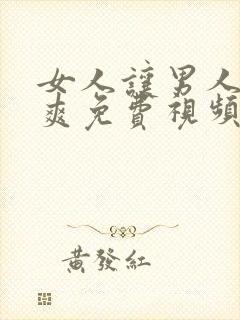 女人讓男人
爽免費視頻
黃發紅